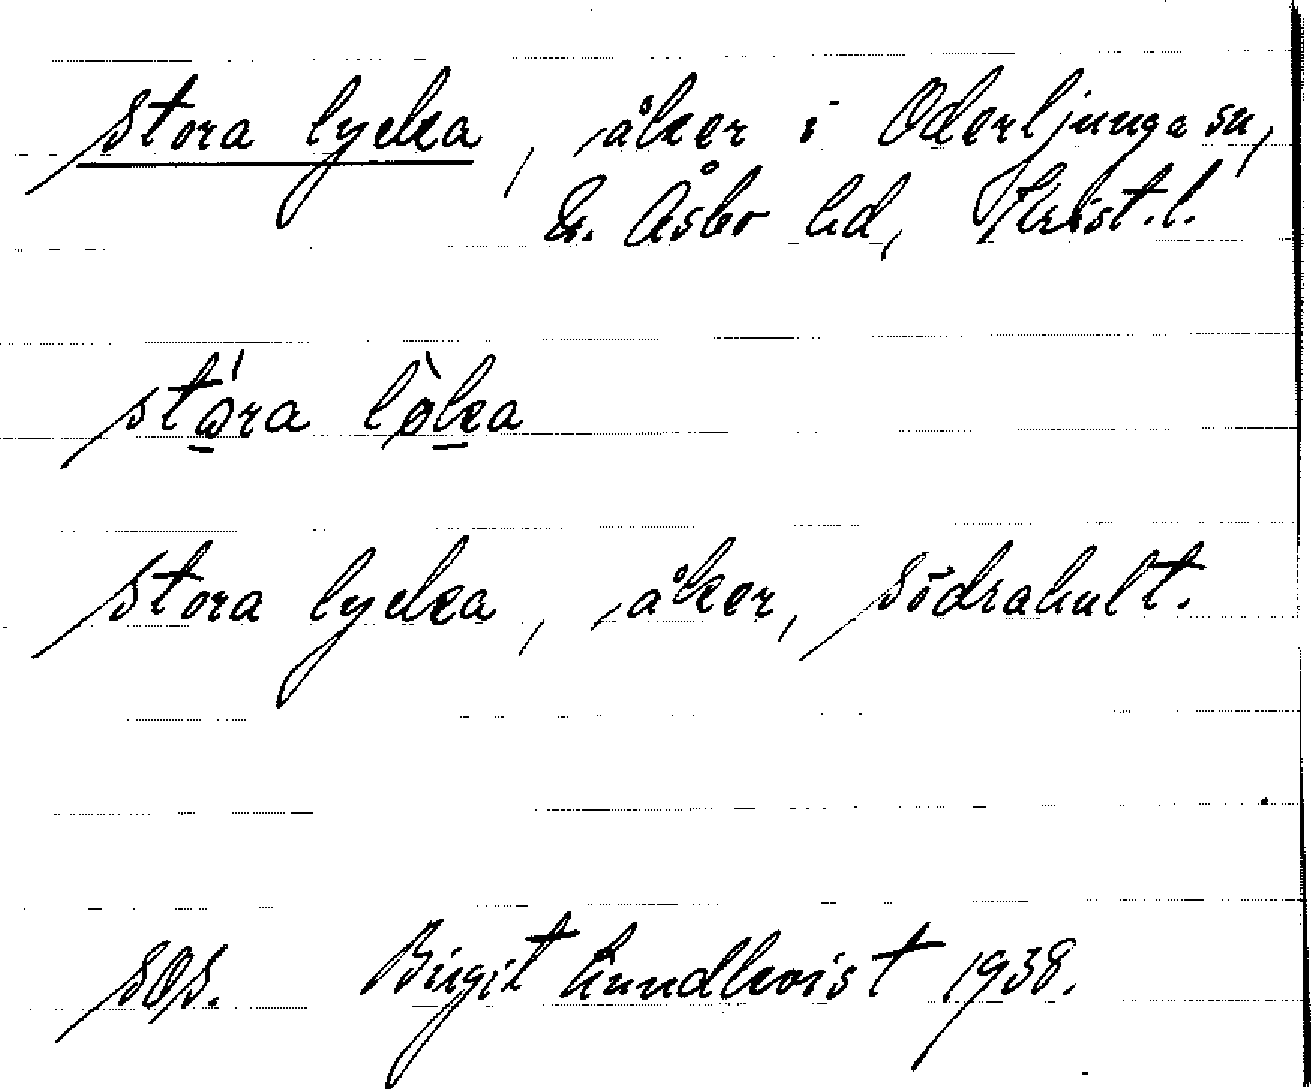 Stora lycka, åker i Oderljunga sn,
N. Åsbo hd, Krist.l.
stǿra lø̀ka
Stora lycka, åker, Södrahult.
SOS. Birgit Lundkvist 1938.